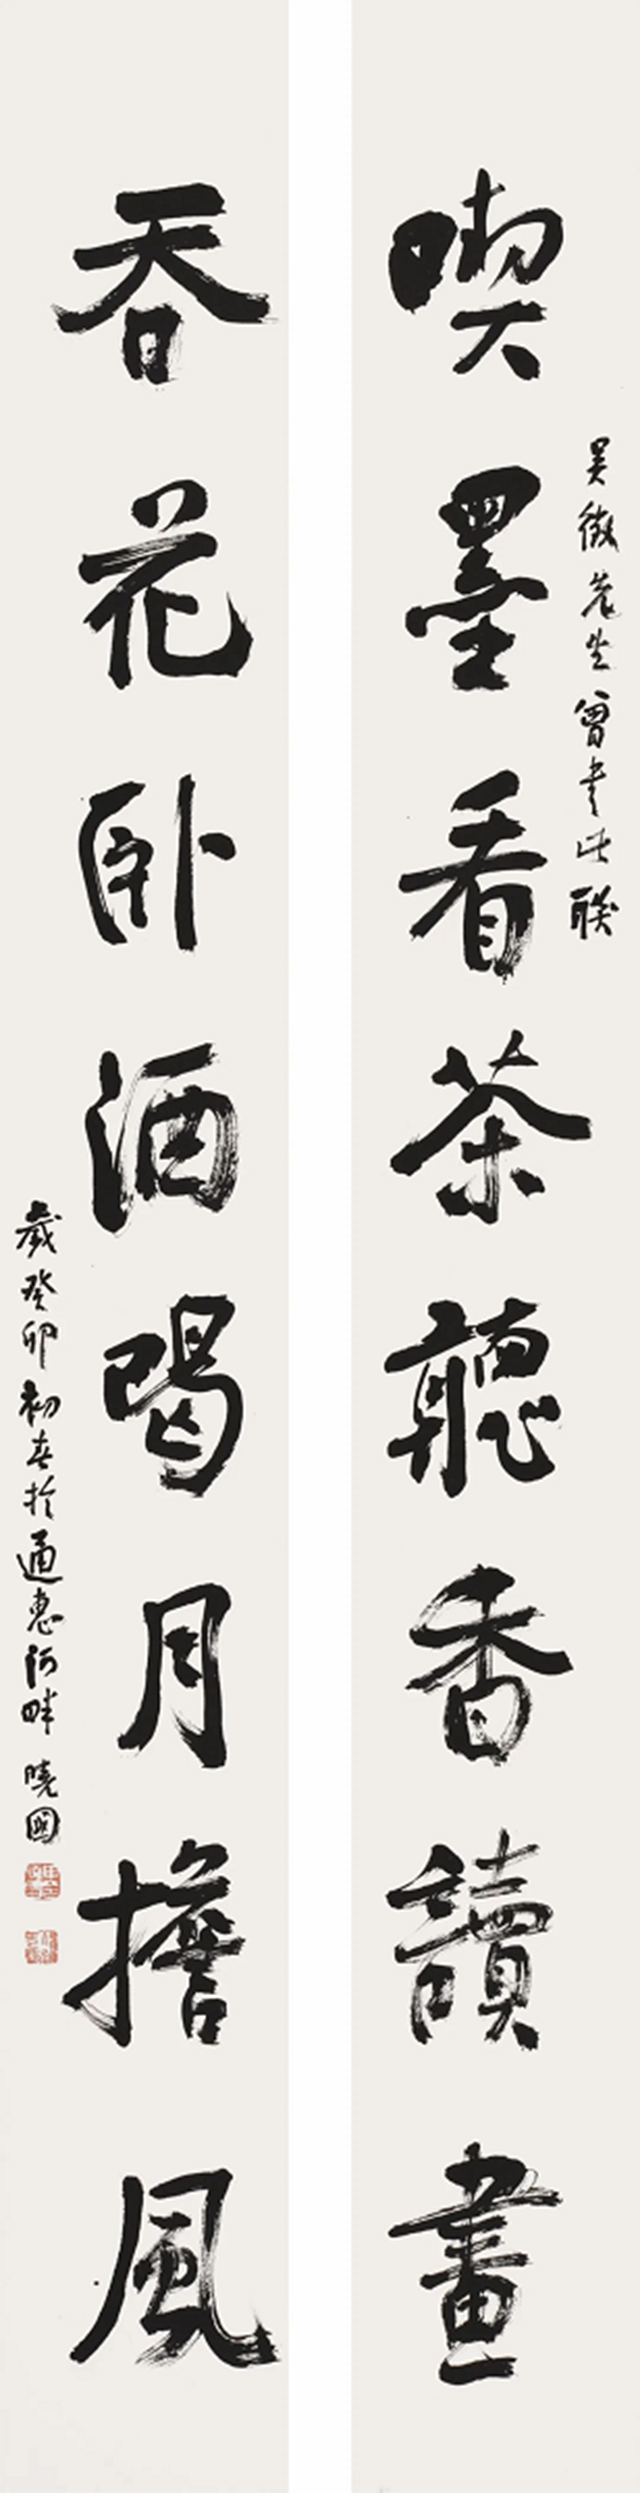 喫墨看茶聽香讀畫
吳徵先生曾書此聯
吞花卧酒喝月擔風
歲癸卯初春於通惠河畔 曉國